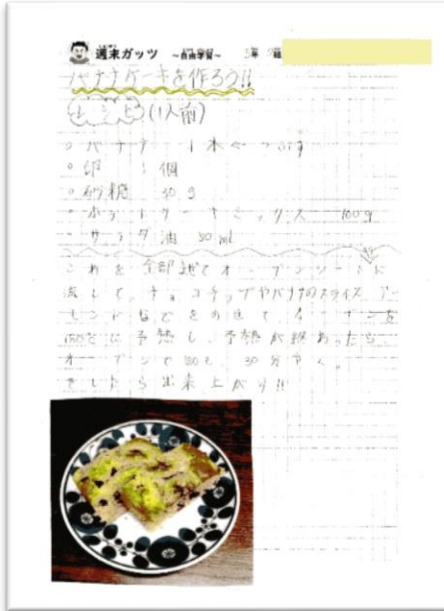 週末ガッツ ～自由学習～ 5年 組
バナナケーキを作ろう!!
レシピ (1人前)
○バナナ 1本←つぶす
○卵 1個
○砂糖 30g
○ホットケーキミックス 100g
○サラダ油 30ml
これを全部混ぜてオーブンシートに
流して、チョコチップやバナナのスライス、アー
モンドなどをのせて、オーブンを
180℃に予熱し、予熱が終わったら
オーブンで180℃、30分やく。
そしたら出来上がり!!